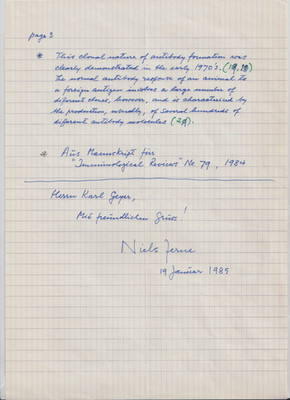 page 3
* This clonal nature of antibody formation was
clearly demonstrated in the early 1970's. (19, 20)
The normal antibody response of an animal to
a foreign antigen involves a large number of
different clones, however, and is characterized by
the production, usually, of several hundreds of
different antibody molecules (21).
* Aus Manuskript für
"Immunological Reviews" No. 79, 1984
Herrn Karl Geyer,
Mit freundlichem Gruss!
Niels Jerne
19 Januar 1985